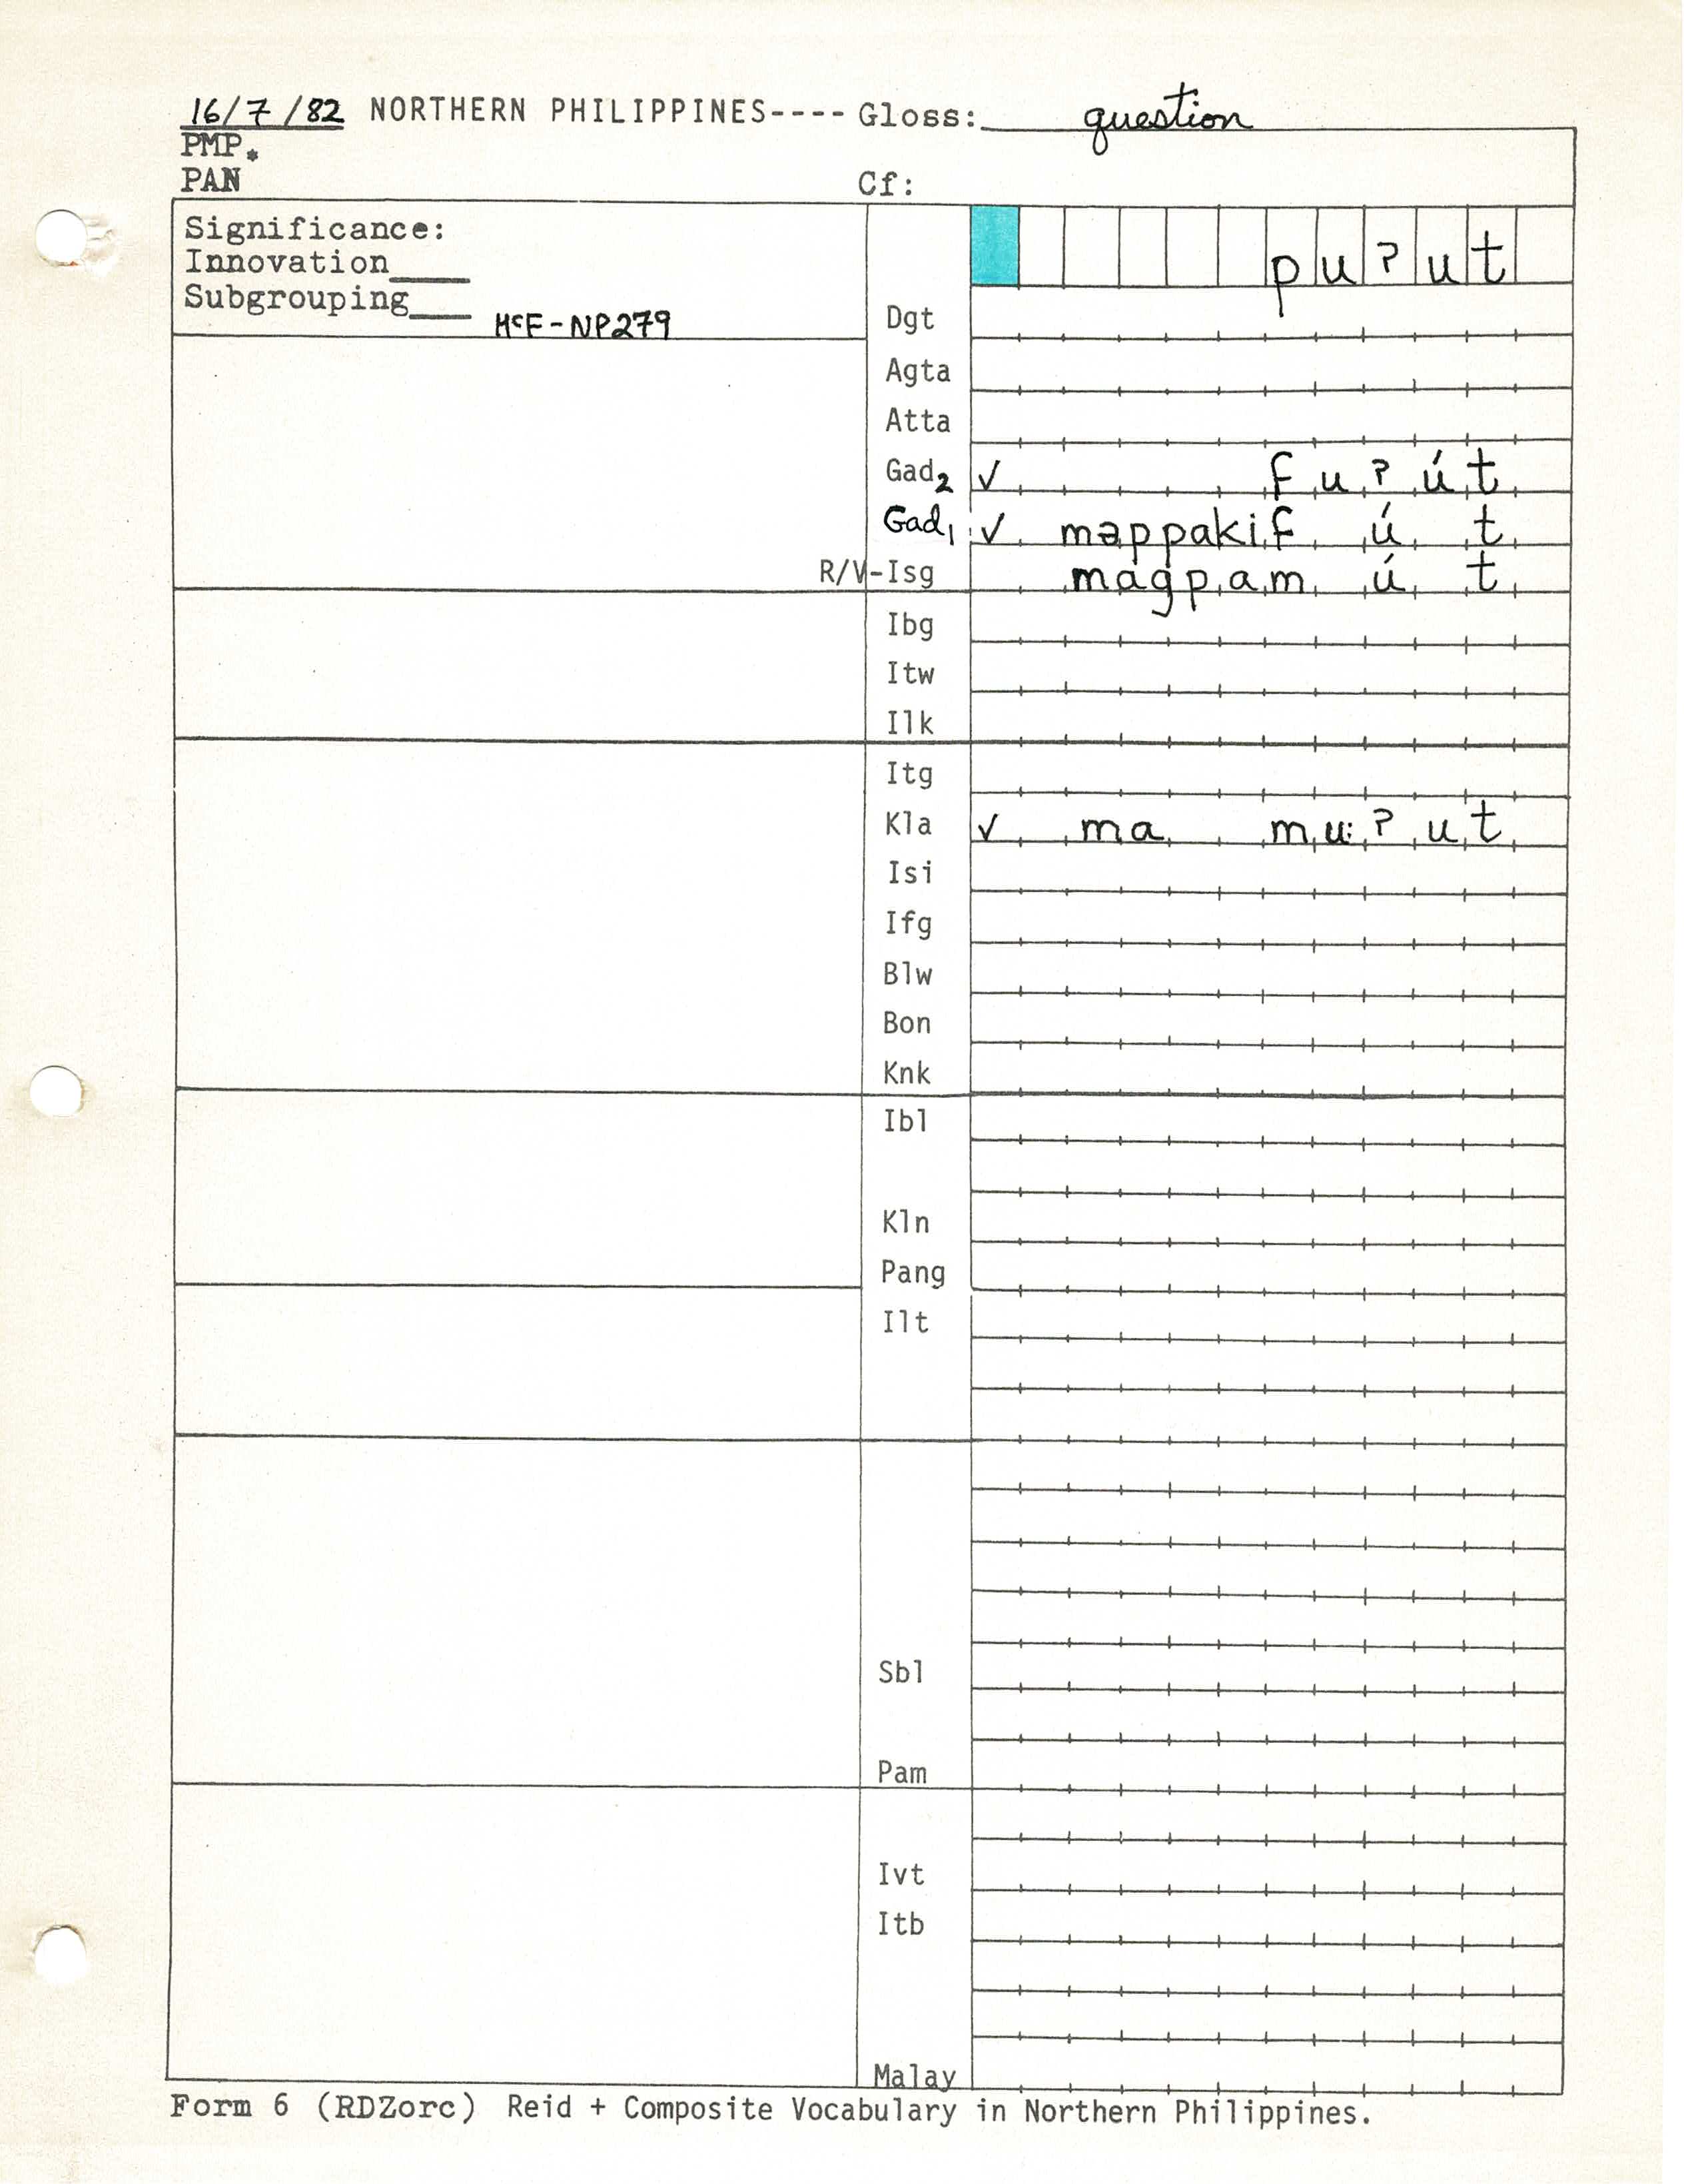 16/7/82 NORTHERN PHILIPPINES---- Gloss: question
PMP*
PAN Cf:
Significance:
Innovation____
Subgrouping___
McF-NP279
puʔut
Dgt
Agta
Atta
Gad2 ✓ fuʔút
Gad1 ✓ məppakif ú t
R/V-Isg magpam ú t
Ibg
Itw
Ilk
Itg
Kla ✓ ma mu:ʔut
Isi
Ifg
Blw
Bon
Knk
Ibl
Kln
Pang
Ilt
Sbl
Pam
Ivt
Itb
Malay
Form 6 (RDZorc) Reid + Composite Vocabulary in Northern Philippines.